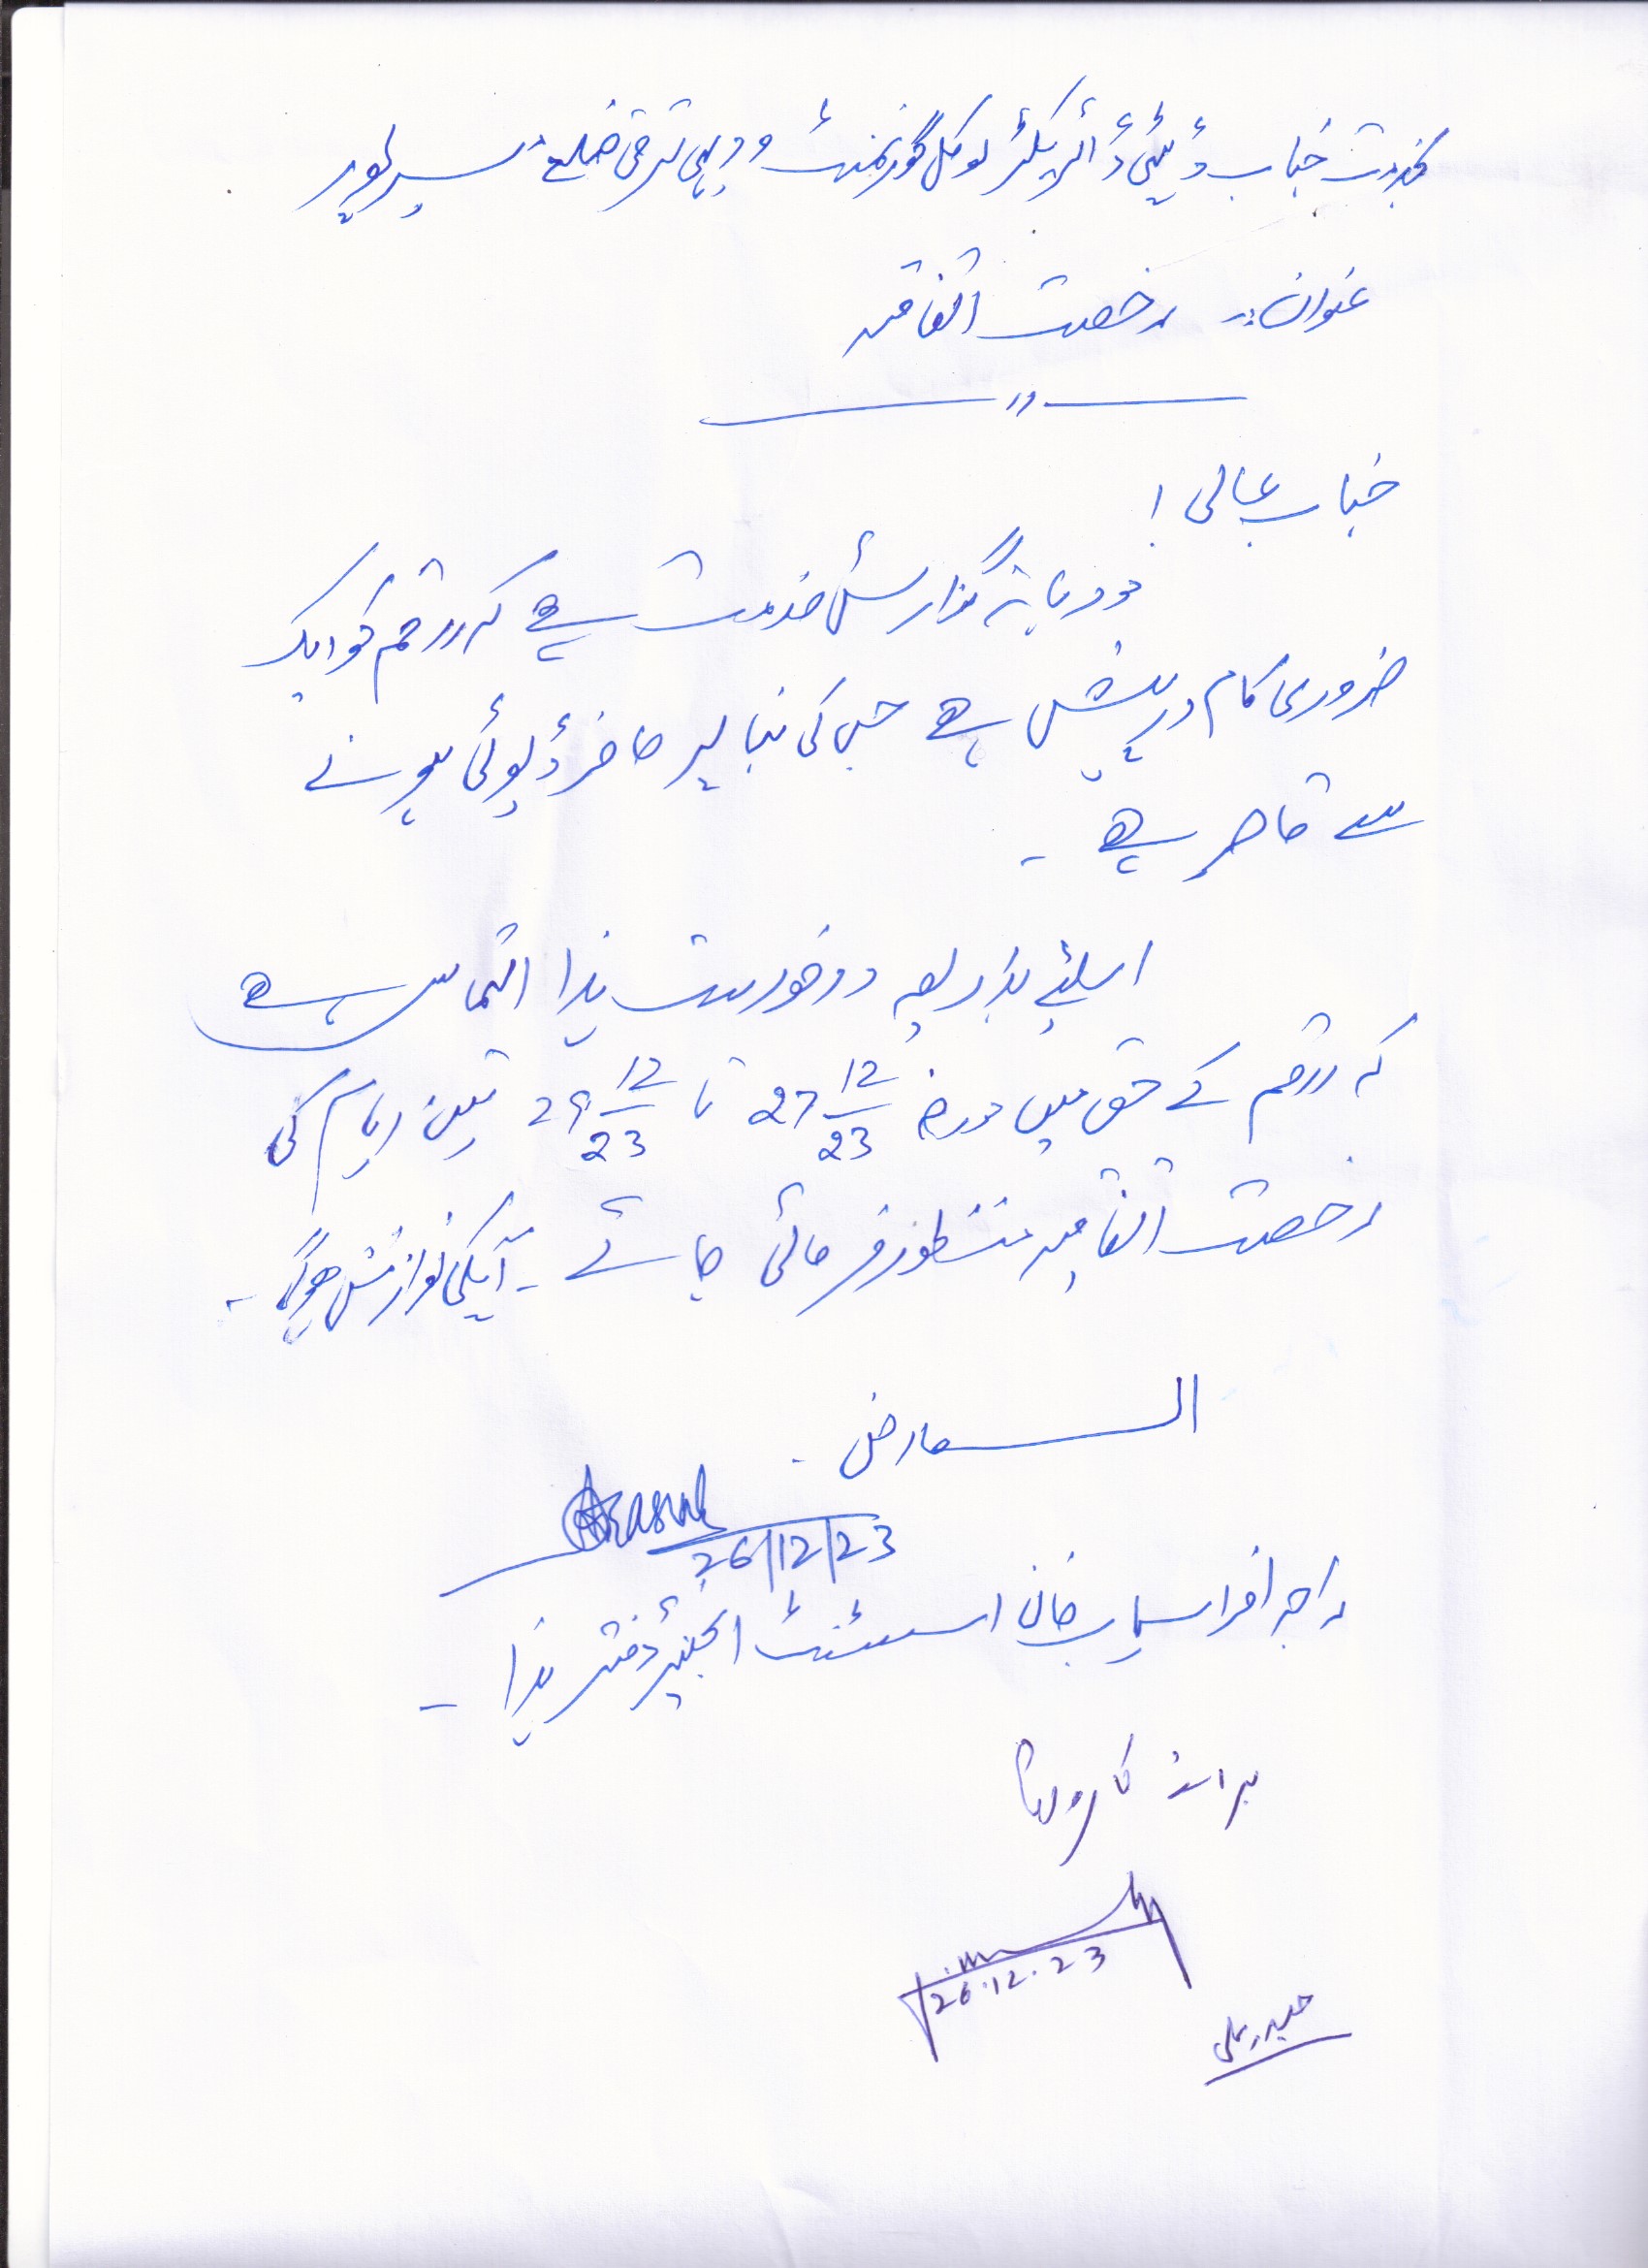 بخدمت جناب ڈپٹی ڈائریکٹر لوکل گورنمنٹ و دیہی ترقی ضلع میرپور
عنوان:۔ رخصت اتفاقیہ
جناب عالی!
مودبانہ گزارش خدمت ہے کہ راقم کو ایک
ضروری کام درپیش ہے جس کی بنا پر حاضر ڈیوٹی ہونے
سے قاصر ہے ۔
اسلئے بذریعہ درخواست ہذا التماس ہے
کہ راقم کے حق میں مورخہ 27 12/23 تا 29 12/23 تین ایام کی
رخصت اتفاقیہ منظور فرمائی جائے ۔ آپکی نوازش ہوگی ۔
العارض ۔
26/12/23
راجہ افراسیاب خان اسسٹنٹ انجینئر دفتر ہذا ۔
برائے کاروائی
26.12.23
حیدر علی